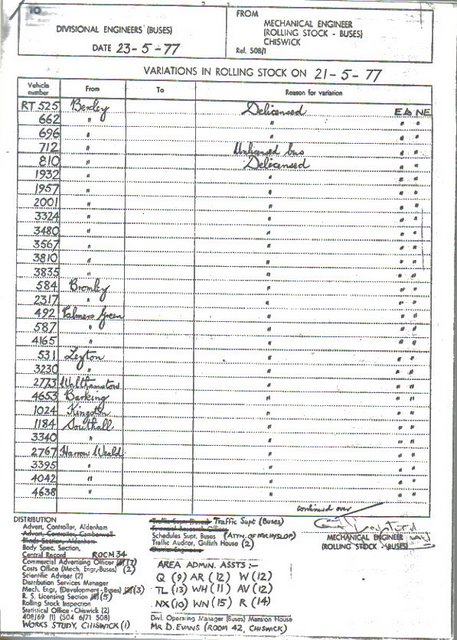 DIVISIONAL ENGINEERS (BUSES)
DATE 23-5-77
FROM
MECHANICAL ENGINEER
(ROLLING STOCK - BUSES)
CHISWICK
Ref. 508/1
VARIATIONS IN ROLLING STOCK ON 21-5-77
Vehicle number From To Reason for variation
RT 525 Bexley Delicensed EA NE
662 " " " "
696 " " " "
712 " Unlicensed bus " "
810 " Delicensed " "
1932 " " " "
1957 " " " "
2001 " " " "
3324 " " " "
3480 " " " "
3567 " " " "
3810 " " " "
3835 " " " "
584 Bromley " " "
2317 " " " "
492 Palmers Green " " "
587 " " " "
4165 " " " "
531 Leyton " " "
3230 " " " "
2773 Walthamstow " " "
4653 Barking " " "
1024 Kingston " " "
1184 Southall " " "
3340 " " " "
2767 Harrow Weald " " "
3395 " " " "
4042 " " " "
4638 " " " "
continued over
MECHANICAL ENGINEER
(ROLLING STOCK - BUSES)
DISTRIBUTION
Advert. Controller, Aldenham
Advert. Controller, Camberwell
Body Spec. Section,
Central Record ROOM 34
Commercial Advertising Officer (2)
Costs Office (Mech. Engr, Buses) (2)
Scientific Adviser (2)
Distribution Services Manager
Mech. Engr, (Development - Buses) (3)
R. S. Licensing Section (5)
Rolling Stock Inspection
Statistical Office - Chiswick (2)
408/69 (1) (504 6/71 508)
WORKS STUDY CHISWICK (1)
Traffic Supt (Buses)
Schedules Supt. Buses (ATTN. OF MR HYSLOP)
Traffic Auditor, Griffith House (2)
AREA ADMN. ASSTS :-
Q (9) AR (12) W (12)
TL (13) WH (11) AV (12)
NX (10) WN (15) R (14)
Divl. Operating Manager (Buses) Mansion House
MR D. EVANS (ROOM 42, CHISWICK)